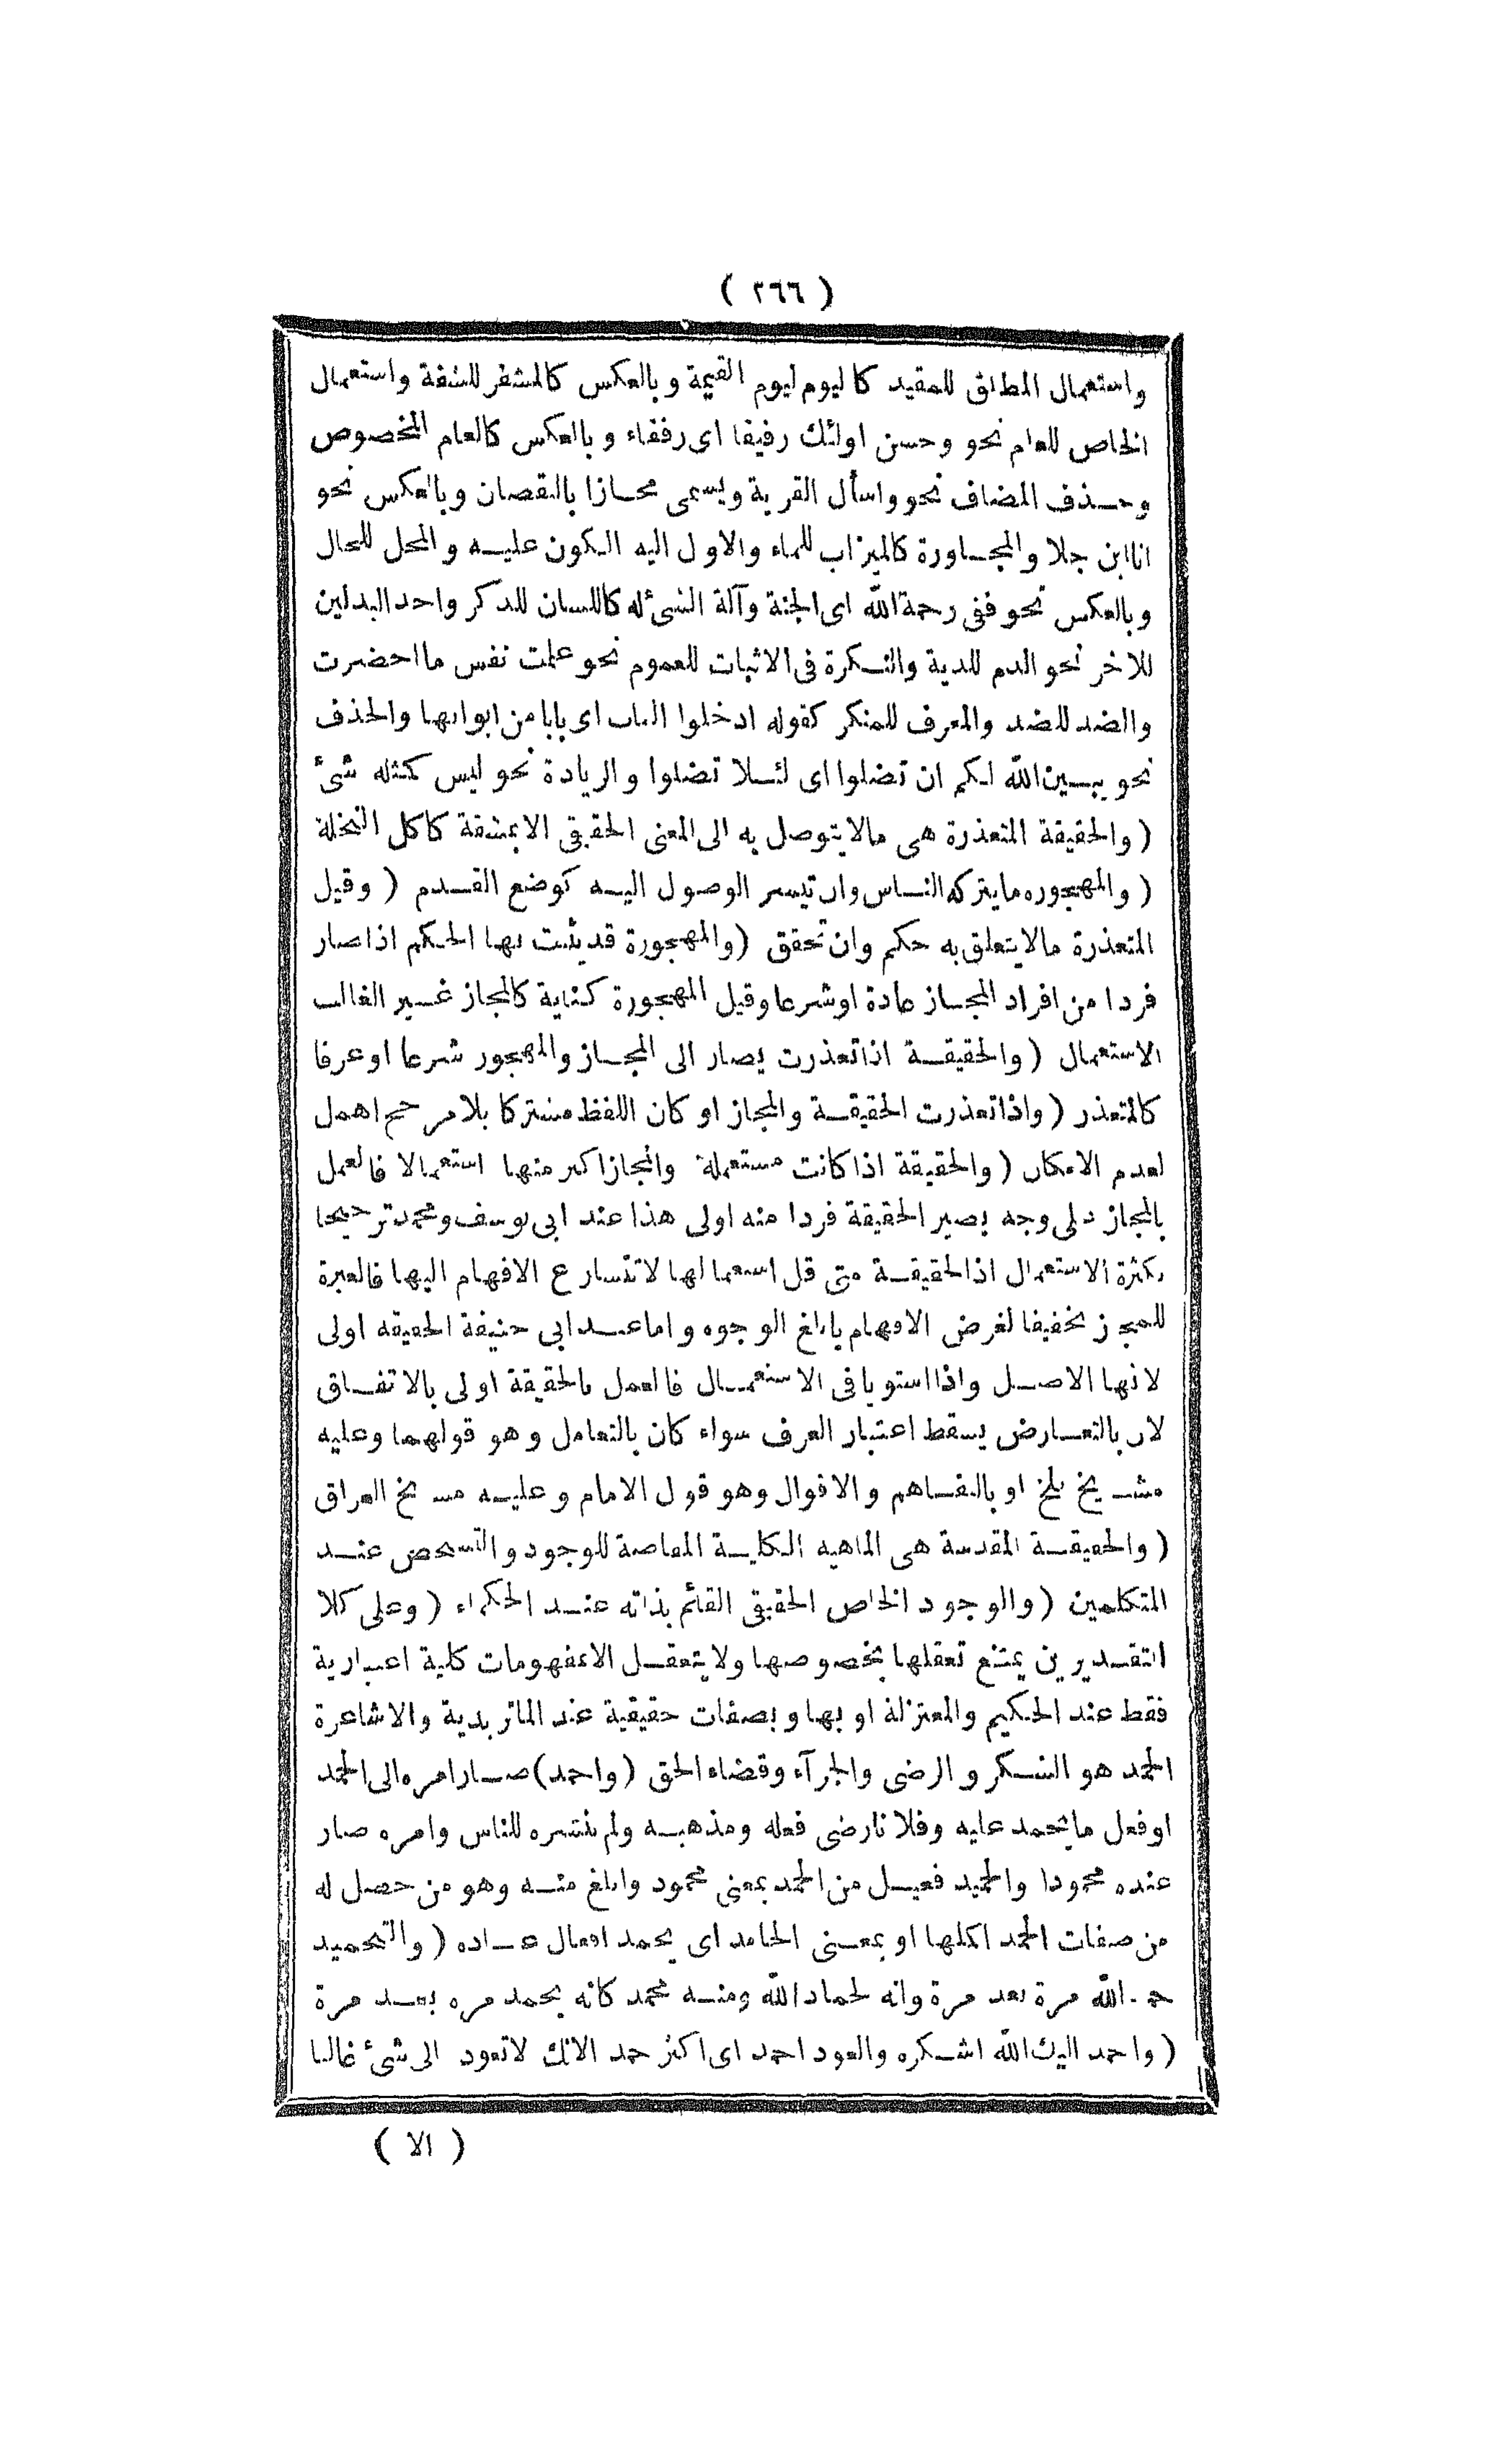 ( ٢٦٦ )
واستعمال المطلق للمقيد كاليوم ليوم القيمة وبالعكس كالمشفر للشفة واستعمال
الخاص للعام نحو وحسن اولئك رفيقا اى رفقاء وبالعكس كالعام المخصوص
وحذف المضاف نحو واسأل القرية ويسمى مجازا بالنقصان وبالعكس نحو
انا ابن جلا والمجاورة كالميزاب للماء والاول اليه الكون عليه والمحل للحال
وبالعكس نحو ففى رحمة الله اى الجنة وآلة الشىء له كاللسان للذكر واحد البدلين
للاخر نحو الدم للدية والنكرة فى الاثبات للعموم نحو علمت نفس ما احضرت
والضد للضد والمعرف للمنكر كقوله ادخلوا الباب اى بابا من ابوابها والحذف
نحو يبين الله لكم ان تضلوا اى لئلا تضلوا والزيادة نحو ليس كمثله شىء
( والحقيقة المتعذرة هى مالا يتوصل به الى المعنى الحقيقى الا بمشقة كاكل النخلة
( والمهجوره ما يتركه الناس وان تيسر الوصول اليه كوضع القدم ( وقيل
المتعذرة مالا يتعلق به حكم وان تحقق ( والمهجورة قد يثبت بها الحكم اذا صار
فردا من افراد المجاز عادة او شرعا وقيل المهجورة كناية كالمجاز غير الغالب
الاستعمال ( والحقيقة اذا تعذرت يصار الى المجاز والمهجور شرعا او عرفا
كالمتعذر ( واذا تعذرت الحقيقة والمجاز او كان اللفظ مشتركا بلا مرجح اهمل
لعدم الامكان ( والحقيقة اذا كانت مستعملة والمجاز اكثر منها استعمالا فالعمل
بالمجاز على وجه يصير الحقيقة فردا منه اولى هذا عند ابى يوسف ومحمد ترجيحا
بكثرة الاستعمال اذ الحقيقة متى قل استعمالها لا تتسارع الافهام اليها فالعبرة
للمجاز تخفيفا لغرض الافهام بابلغ الوجوه واما عند ابى حنيفة الحقيقه اولى
لانها الاصل واذا استويا فى الاستعمال فالعمل بالحقيقة اولى بالاتفاق
لان بالتعارض يسقط اعتبار العرف سواء كان بالتعامل وهو قولهما وعليه
مشايخ بلخ او بالتفاهم والاقوال وهو قول الامام وعليه مشايخ العراق
( والحقيقة المقدسة هى الماهيه الكلية المعاصة للوجود والتشخص عند
المتكلمين ( والوجود الخاص الحقيقى القائم بذاته عند الحكماء ( وعلى كلا
التقديرين يمتنع تعقلها بخصوصها ولا يتعقل الا بمفهومات كلية اعتبارية
فقط عند الحكيم والمعتزلة او بها وبصفات حقيقية عند الماتريدية والاشاعرة
الحمد هو الشكر والرضى والجزآء وقضاء الحق ( واحمد ) صار امره الى الحمد
او فعل ما يحمد عليه وفلانا رضى فعله ومذهبه ولم ينشره للناس وامره صار
عنده محمودا والحميد فعيل من الحمد بمعنى محمود وابلغ منه وهو من حصل له
من صفات الحمد اكملها او بمعنى الحامد اى يحمد افعال عباده ( والتحميد
حمد الله مرة بعد مرة وانه لحماد الله ومنه محمد كانه يحمد مره بعد مرة
( واحمد اليك الله اشكره والعود احمد اى اكثر حمد الانك لا تعود الى شىء غالبا
( الا )